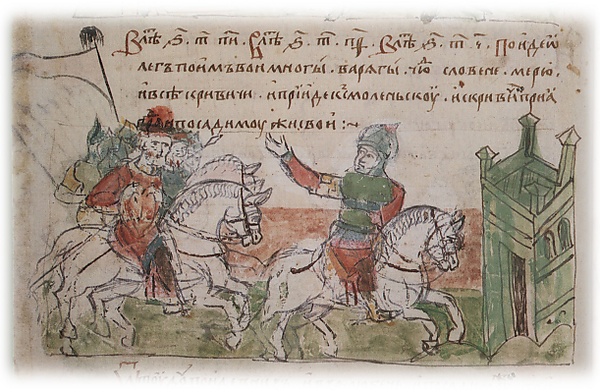 Влѣ ҂ѕ҃. т҃. п҃и. Влѣ ҂ѕ҃. т҃. Влѣ ҂ѕ҃. т҃. ч҃. Поиде ѡ
легъ поимъ вои многы. варѧгы. чю словене. мерю.
ивсѣ кривичи. ипрїиде къ смоленьскоу. искривичи приа
градъ ипосади моужи свои :~